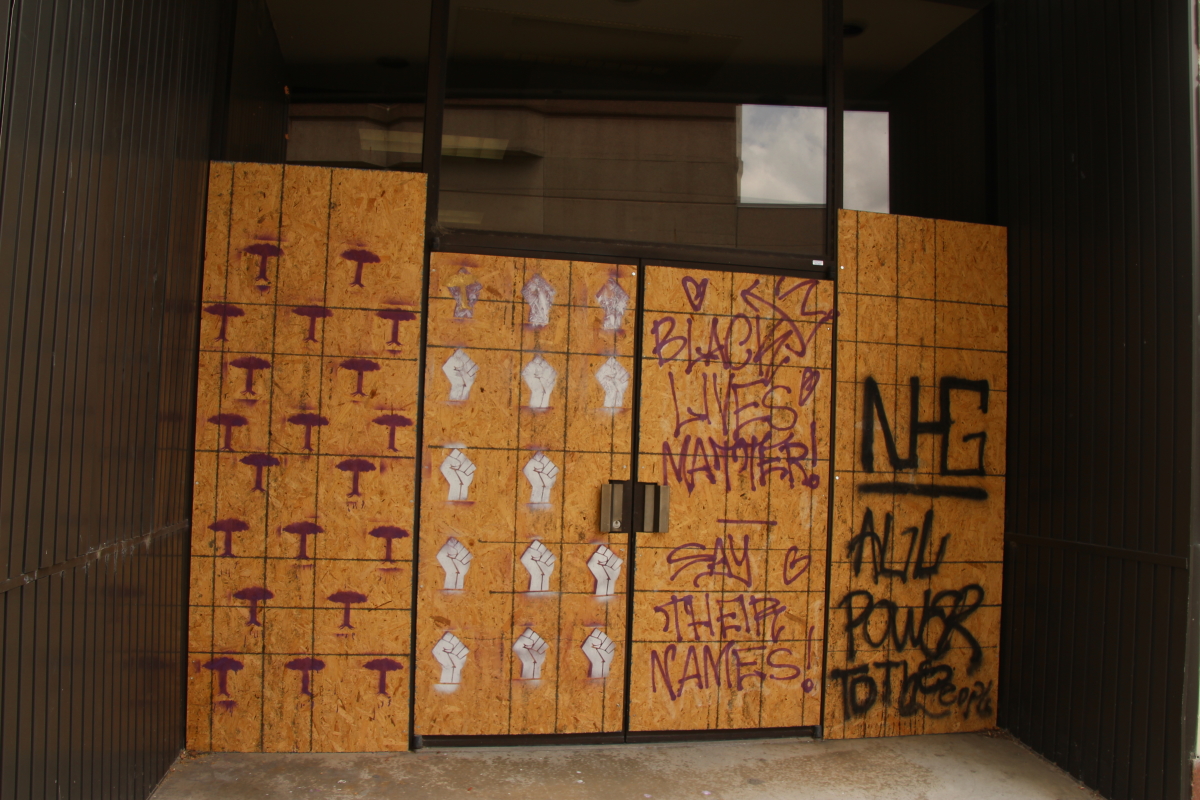 BLACK
LIVES
MATTER!
SAY
THEIR
NAMES!
NHG
ALL
POWER
TO THE
PEOPLE